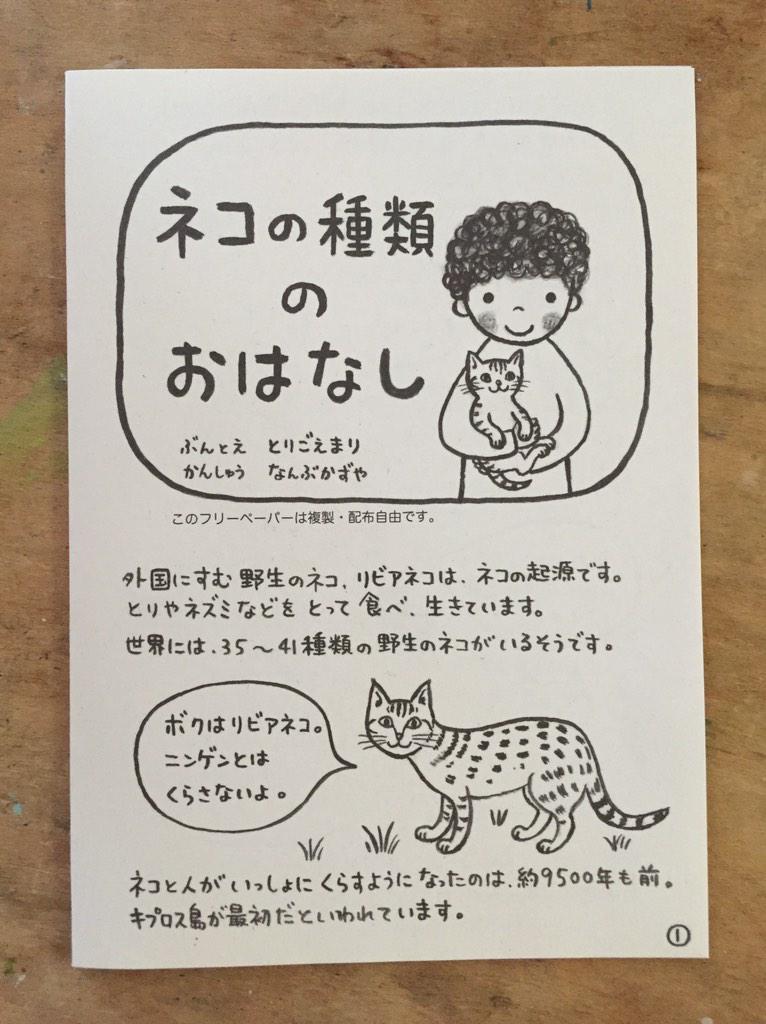 ネコの種類
の
おはなし
ぶんとえ とりごえまり
かんしゅう なんぶかずや
このフリーペーパーは複製・配布自由です。
外国にすむ野生のネコ、リビアネコは、ネコの起源です。
とりやネズミなどをとって食べ、生きています。
世界には、35〜41種類の野生のネコがいるそうです。
ボクはリビアネコ。
ニンゲンとは
くらさないよ。
ネコと人がいっしょにくらすようになったのは、約9500年も前。
キプロス島が最初だといわれています。
①